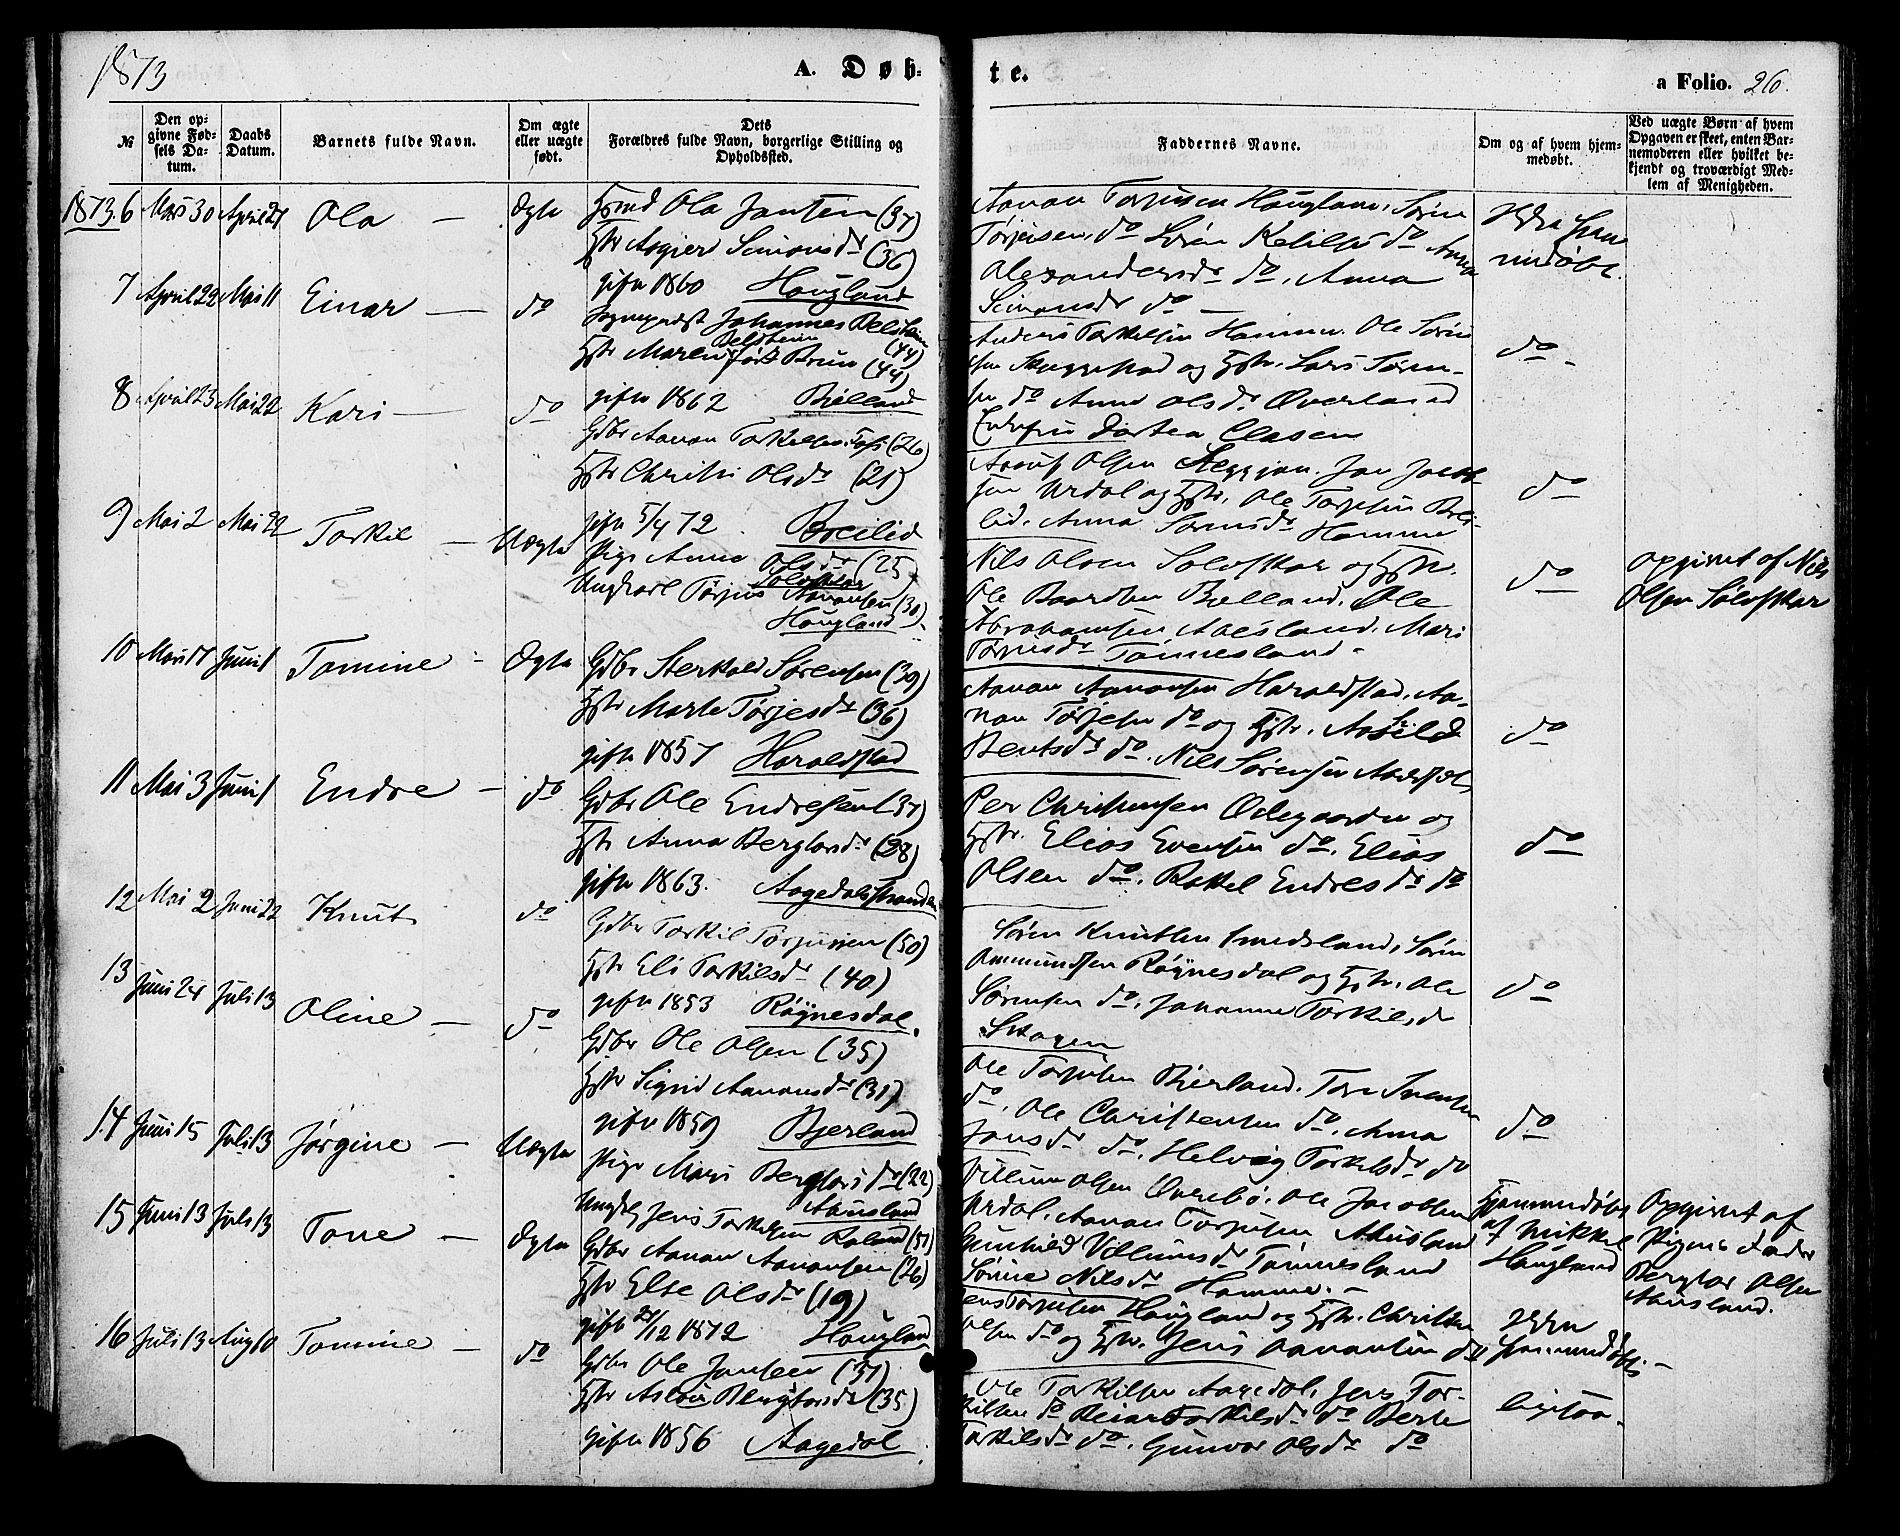 1873
A. Døb-
te.
a Folio. 26.
№
Den op-
givne Fød-
sels Da-
tum.
Daabs
Datum.
Barnets fulde Navn.
Om ægte
eller uægte
født.
Dets
Forældres fulde Navn, borgerlige Stilling og
Opholdssted.
Faddernes Navne.
Om og af hvem hjem-
medøbt.
Ved uægte Børn af hvem
Opgaven er skeet, enten Bar-
nemoderen eller hvilket be-
kjendt og troværdigt Med-
lem af Menigheden.
1873. 6 Mars 30 April 27 Ola — Ægte
Ola Jansen (37)
Hstr Asgjer Simonsdr (36)
gifte 1860 Hougland
Aanan Torjusen Hougland, Søren
Torjusen, do Søren Ketilsen do Anna
Alexandersdr do, Anna
Simonsdr do —
7 April 22 Mai 11 Einar — do
Johannes Belsheim (44)
Hstr Maren Belsheim født Brun (44)
gifte 1862 Bjelland
Anders Torkelsen Homme. Ole Søren
sen og Hstr. Lars Søren-
sen do Anne Olsdr. Øverland
Dortea Clasen
do -
8 April 23 Mai 22 Kari — do
Gdbr Aanan Torkelsen (26)
Hstr Christi Olsdr (21)
gifte 5/4 72 Breilid
Olsen Jon Jacob-
sen Urdal og Hstr. Ole Torjusen Brei-
lid. Anna Sørensdr Homme
do
9 Mai 2 Mai 22 Torkil — Uægte
Pige Anne Olsdr (25)
Solofskar
Ungkarl Tørjus Aanansen (30)
Hougland
Nils Olsen Solofskar og Hstr.
Ole Baardsen Bjelland. Ole
Abrahamsen Aaesland. Mari
Tørresdr Tønnesland -
do
opgivet af Nils
Olsen Solofskar
10 Mars 17 Juni 1 Tomine - Ægte
Gdbr Sterkold Sørensen (39)
Hstr Marte Tørjesdr (36)
gifte 1857 Haraldstad
Aanan Aanansen Haraldstad. Aa-
nan Tørjesen do og Hstr. Aashild
Bentsdr do. Nils Sørensen
do
11 Mai 3 Juni 1 Endre — do
Gdbr Ole Endresen (37)
Hstr Anna Berglorsdr (28)
gifte 1863. Aagedalstranden
Per Christensen Ødegaarden og
Hstr. Elias Evensen do. Elias
Olsen do. Rakel Endresdr do
do
12 Mai 2 Juni 22 Knut do
Gdbr Torkil Torjussen (50)
Hstr Eli Torkilsdr (40)
gifte 1853 Røynesdal.
Søren Knutsen Smedsland, Søren
Ommundsen Røynesdal og Hstr. Ole
Sørensen do, Johanne Torkilsd
Skogen
do
13 Juni 24 Juli 13 Oline — do
Gdbr Ole Olsen (35)
Hstr Sigrid Aanansdr (31)
gifte 1859 Bjerland
Ole Torjusen Bjerland. Tore Svensen
do. Ole Christensen do. Anna
Jonsdr do. Helvig Torkelsdr do
do
14 Juni 15 Juli 13 Jørgine — Uægte
Pige Mari Berglorsdr (22)
Aausland
Ungk. Jens Torkelsen Roland (31)
Villum Olsen Øvrebø. Ole Jacobsen
Urdal. Aanan Torjusen Ahusland
Gunhild Villumsdr Tønnesland
Sørine Nilsdr Homme. —
Hjemmedøbt
af Mikkel
Hougland
Opgivet af
Pigens Fader
Berglor Olsen
Aausland.
15 Juni 13 Juli 13 Tone — Ægte
Gdbr Aanan Aanansen (26)
Hstr Else Olsdr (19)
gifte 21/12 1872 Hougland
Jens Torjusen Hougland og Hstr. Christen
Olsen do og Hstr. Jens Aanansen do
ikke
hjemmedøbt. —
16 Juli 13 Aug 10 Tomine — do
Gdbr Ole Jensen (37)
Hstr Aslou Berglorsdr (35)
gifte 1856 Aagedal
Ole Torkilsen Aagedal, Jens Tor-
kilsen do Torkilsdr do Berte
Torkilsdr do. Gunvor Olsdr do
ligesaa.